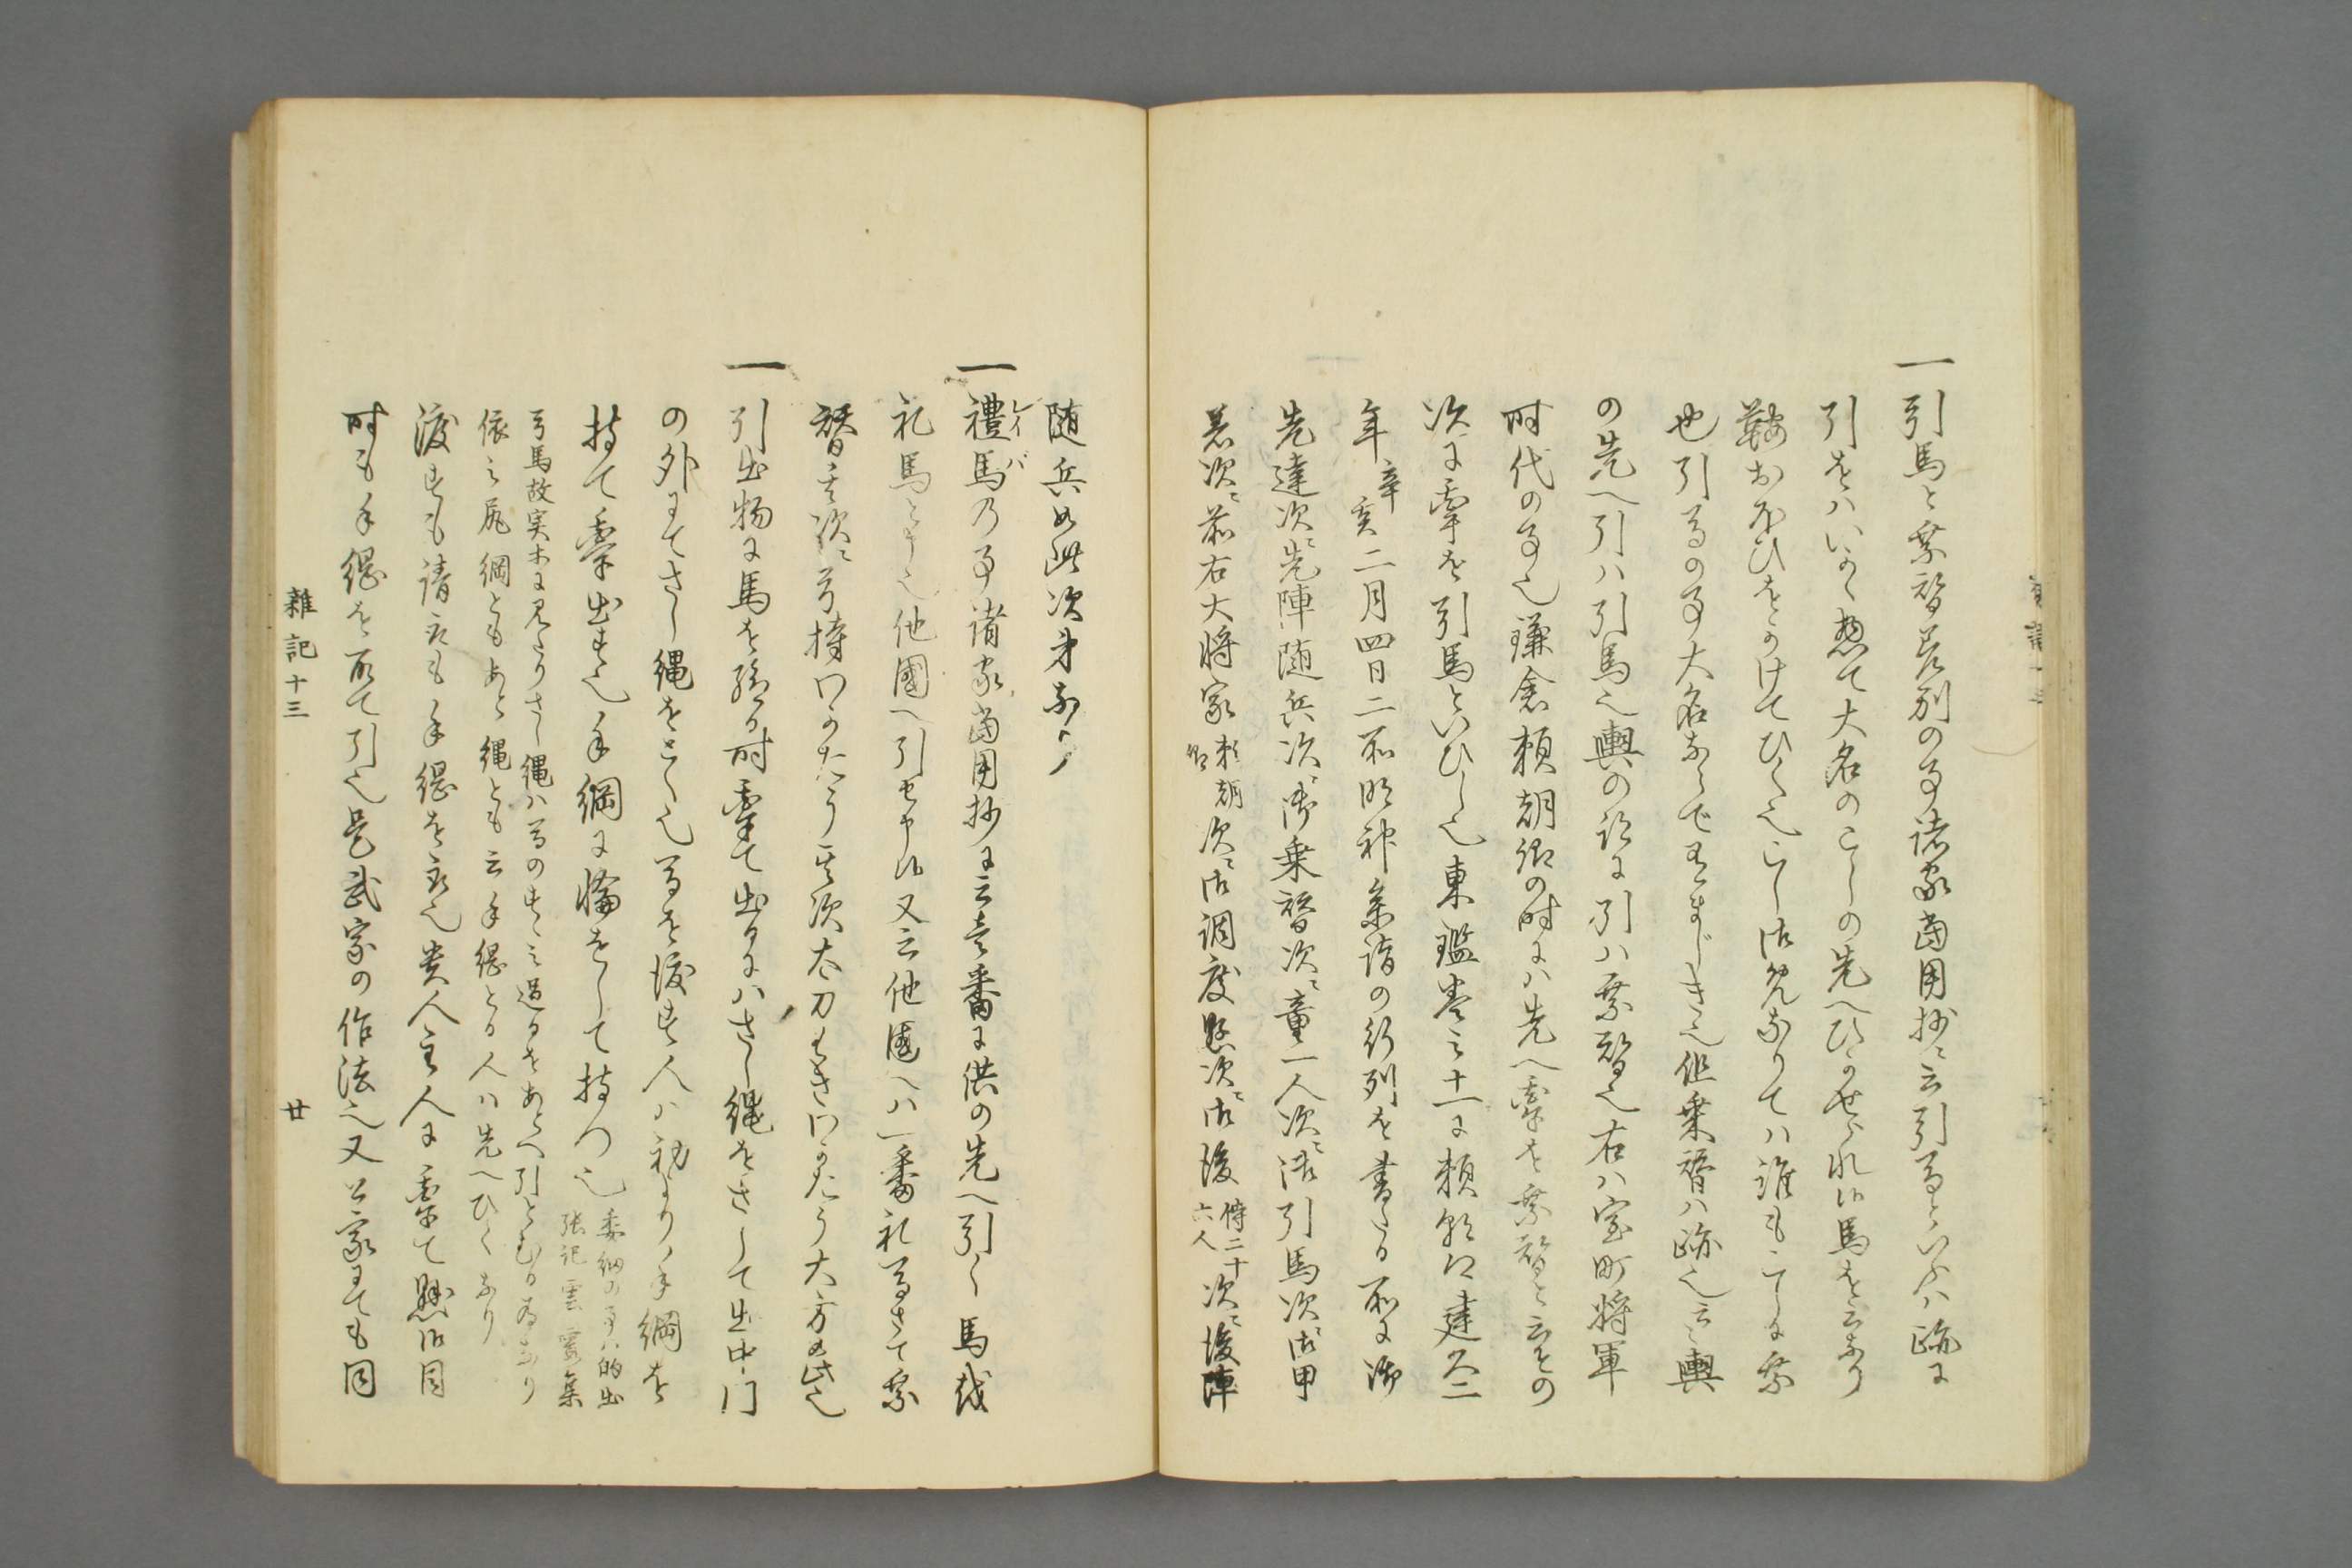 一引馬と乗替差別の事諸家当用抄ニ云引馬といふハ跡に
引をハいはく惣て大名のこしの先へひかせられ候馬を云なり
鞍おほひをかけてひく也 御免なりてハ誰も 乗
也引馬の事大名ならで有まじき也但乗替ハ跡也云々輿
の先へ引ハ引馬也輿の跡に引ハ乗替也右ハ室町将軍
時代の事也鎌倉頼朝卿の時にハ先へ牽を乗替と云その
次に牽を引馬といひし也東鑑巻之十一に頼朝 建久二
年辛亥二月四日二所明神参詣の行列を書たる所に御
先達次ニ先陣随兵次ニ御乗替次ニ童一人次ニ御引馬次ニ御甲
着次ニ前右大将家頼朝卿次ニ御調度懸次ニ御後侍二十六人次ニ後陣
随兵如此次第なり
一禮馬の事諸家当用抄に云壱番に供の先へ引く馬を
礼馬と申也他國へ引せ申候又云他國へハ一番礼馬さて乗
替其次ニ弓持のかたう其次太刀もちのかたう大方如此也
一引出物に馬を給る時牽て出るにハさし縄をさして出中門
の外にてさし縄をとく也馬を渡す人ハ初より手綱を
持て牽出す也手綱に輪をして持つ也委細の事ハ的出張記雲霞集
弓馬故実本に見たりさし縄ハ馬のすゝみ過るをあとへ引とむる為なり
依之尻綱ともあと縄とも云手縄とる人ハ先へひくなり
渡すも請取も手縄を取也貴人主人に牽て懸御目
時も手縄を取て引也是武家の作法也又公家にても同
雑記十三
廿